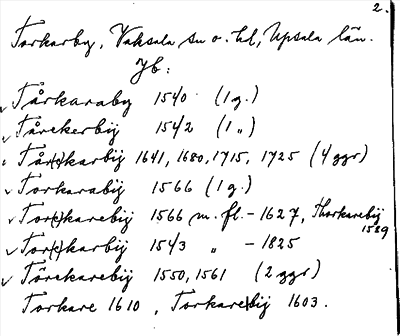 2.
Torkarby, Vaksala sn o. hd, Upsala län.
Jb:
Tårkaraby 1540 (1 g.)
Tårckerbij 1542 (1 „)
Tår(c)karbij 1641, 1680, 1715, 1725 (4 ggr)
Torkarabij 1566 (1 g.)
Tor(c)karebij 1566 m. fl. - 1627, Thorkarebij 1589
Tor(c)karbij 1543 „ - 1825
Tårckarebij 1550, 1561 (2 ggr)
Torkare 1610, Torkarebij 1603.